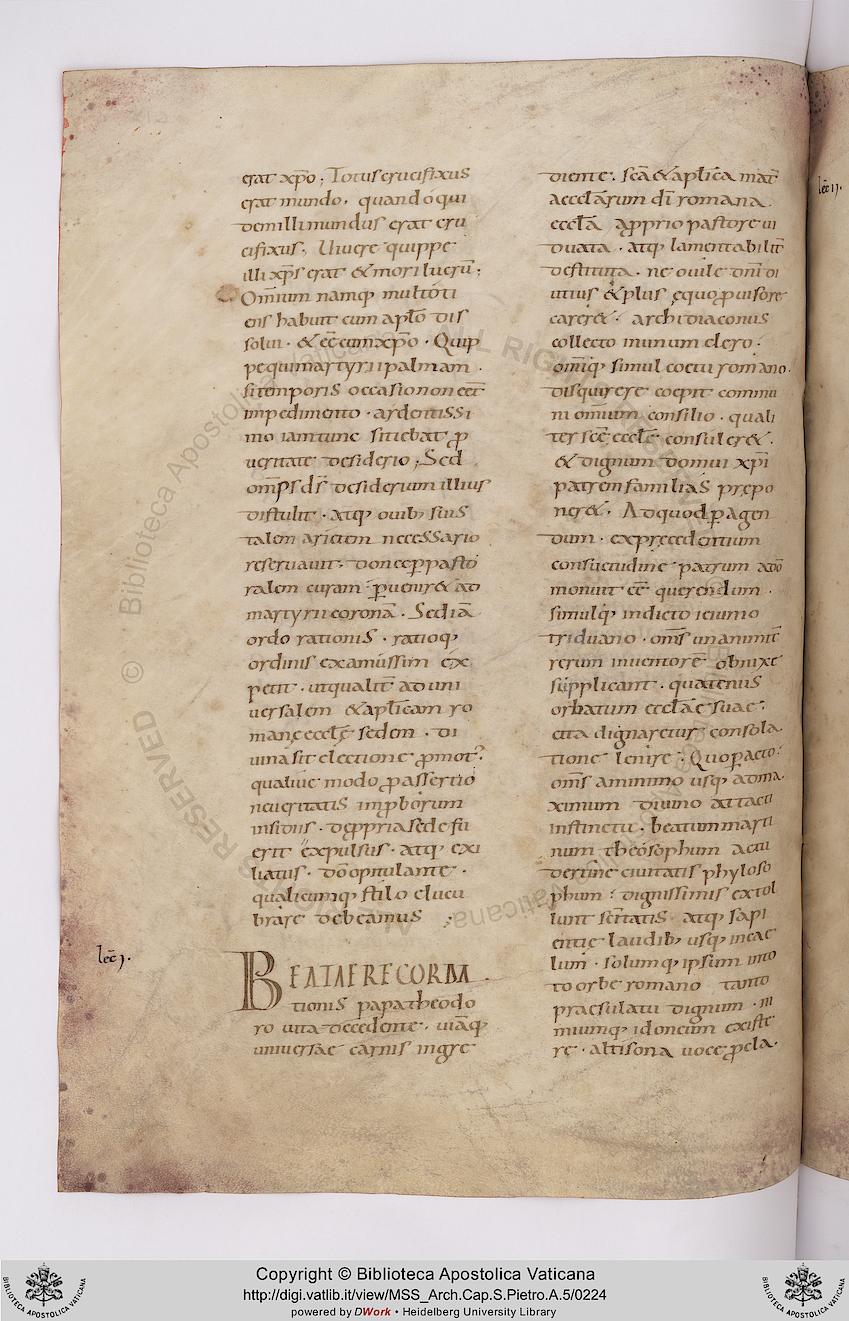 erat xp̄o ; Totus crucifixus
erat mundo . quando ó qui
dem illi mundus erat cru
cifixus . Uiuere quippe
illi xp̄s erat & mori lucrū ;
Om̄ium namq; multoti
ens habuit cum apl̄o dis
solui . & eē cum xp̄o . Quip
pe qui martyrii palmam .
si temporis occasio non eēt
impedimento . ardentissi
mo iam tunc sitiebat ꝓ
ueritate desiderio ; Sed
om̄ps ds̄ desiderium illius
distulit . atq; ouib; suis
talem arietem necessario
reseruauit . donec ꝑ pasto
ralem curam ꝑuenir& ad
martyrii coronā . Sed iā
ordo rationis . ratioq;
ordinis examussim ex
petit . ut qualit̄ ad uni
uersalem & apl̄icam ro
manę eccl̄ę sedem . di
uina sit electione ꝓmot᾽
qualiue modo ꝓ assertio
ne ueritatis improborum
insidiis . de ꝓpria sede fu
erit expulsus . atq; exi
liatus . dō opitulante .
qualicumq; stilo elucu
brare debeamus ;
lec̄ j.
BEATAE RECORDA
tionis papa theodo
ro uita decedente . uiāq;
uniuersae carnis ingre
diente . sc̄a & apl̄ica mat̄
aecclārum dī romana
eccl̄a ꝓprio pastore ui
duata . atq; lamentabilit̄
destituta . ne ouile dn̄i di
utius & plus ęquo ꝓuisore
carer& . archidiaconus
collecto in unum clero .
om̄iq; simul coetu romano .
disquirere coepit commu
ni om̄ium consilio . quali
ter sc̄ę eccl̄ę consuler& .
& dignum domui xp̄i
patrem familias prepo
ner& . Ad quod ꝑagen
dum . ex precedentium
consuetudine patrum ado
monuit eē querendum .
simulq; indicto ieiunio
triduano . om̄s unanimit̄
rerum inuentorē obnixe
supplicant . quatenus
orbatum eccl̄ae suae .
cita dignaretur consola
tione lenire . Quo ꝑacto .
om̄s a minimo usq; ad ma
ximum diuino attacti
instinctu . beatum marti
num theosophum actu
dertinę ciuitatis phyloso
phum . dignissimis extol
lunt sc̄itatis atq; sapi
entię laudib; usq; in cae
lum . solumq; ipsum in to
to orbe romano tanto
praesulatu dignum . ni
miumq; idoneum existe
re . altisona uoce ꝓcla .
lec̄ ij.
Copyright © Biblioteca Apostolica Vaticana
http://digi.vatlib.it/view/MSS_Arch.Cap.S.Pietro.A.5/0224
powered by DWork • Heidelberg University Library